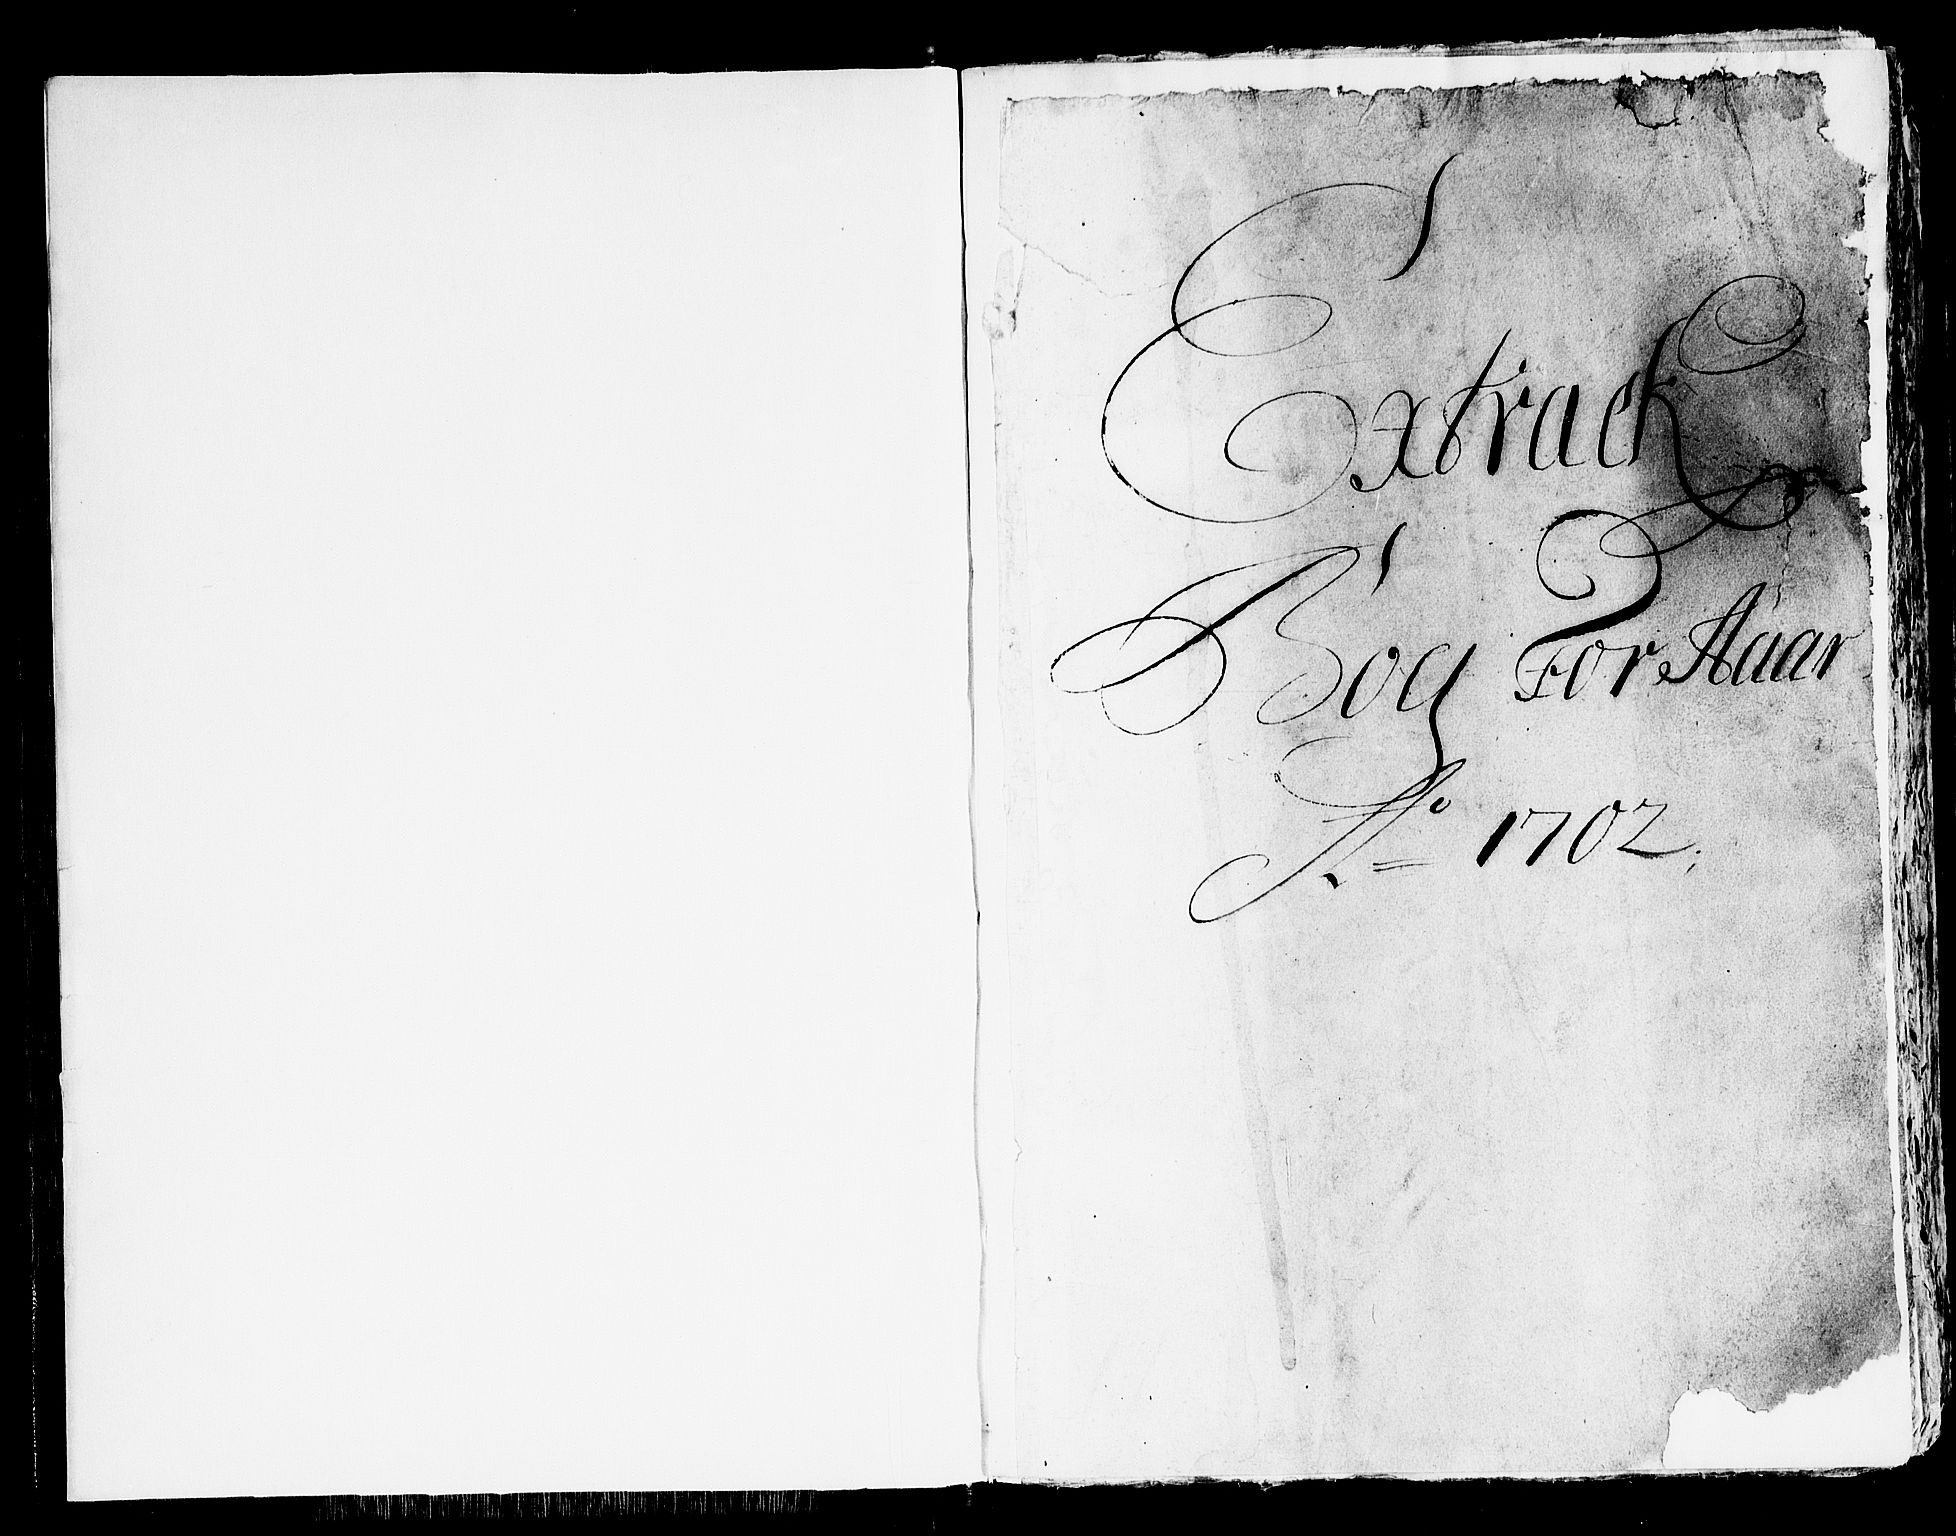 Extract
Bog For Aaar
Aº 1702.